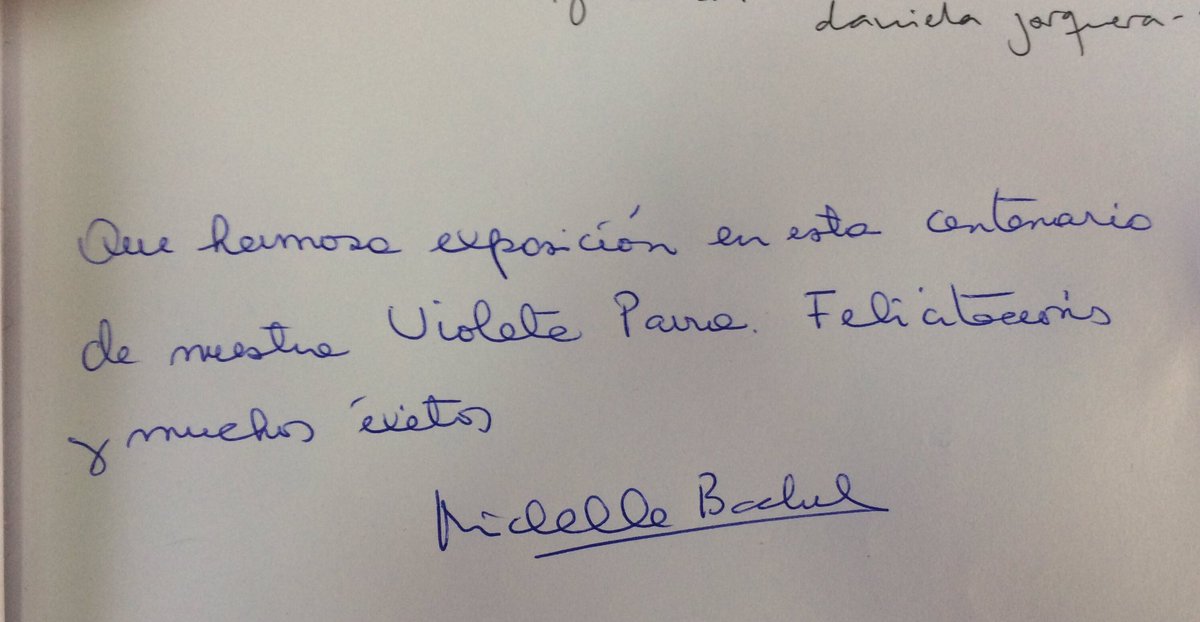 daniela jorquera-
Que hermosa exposición en este centenario
de nuestra Violeta Parra. Felicitaciones
y muchos éxitos
Michelle Bachel